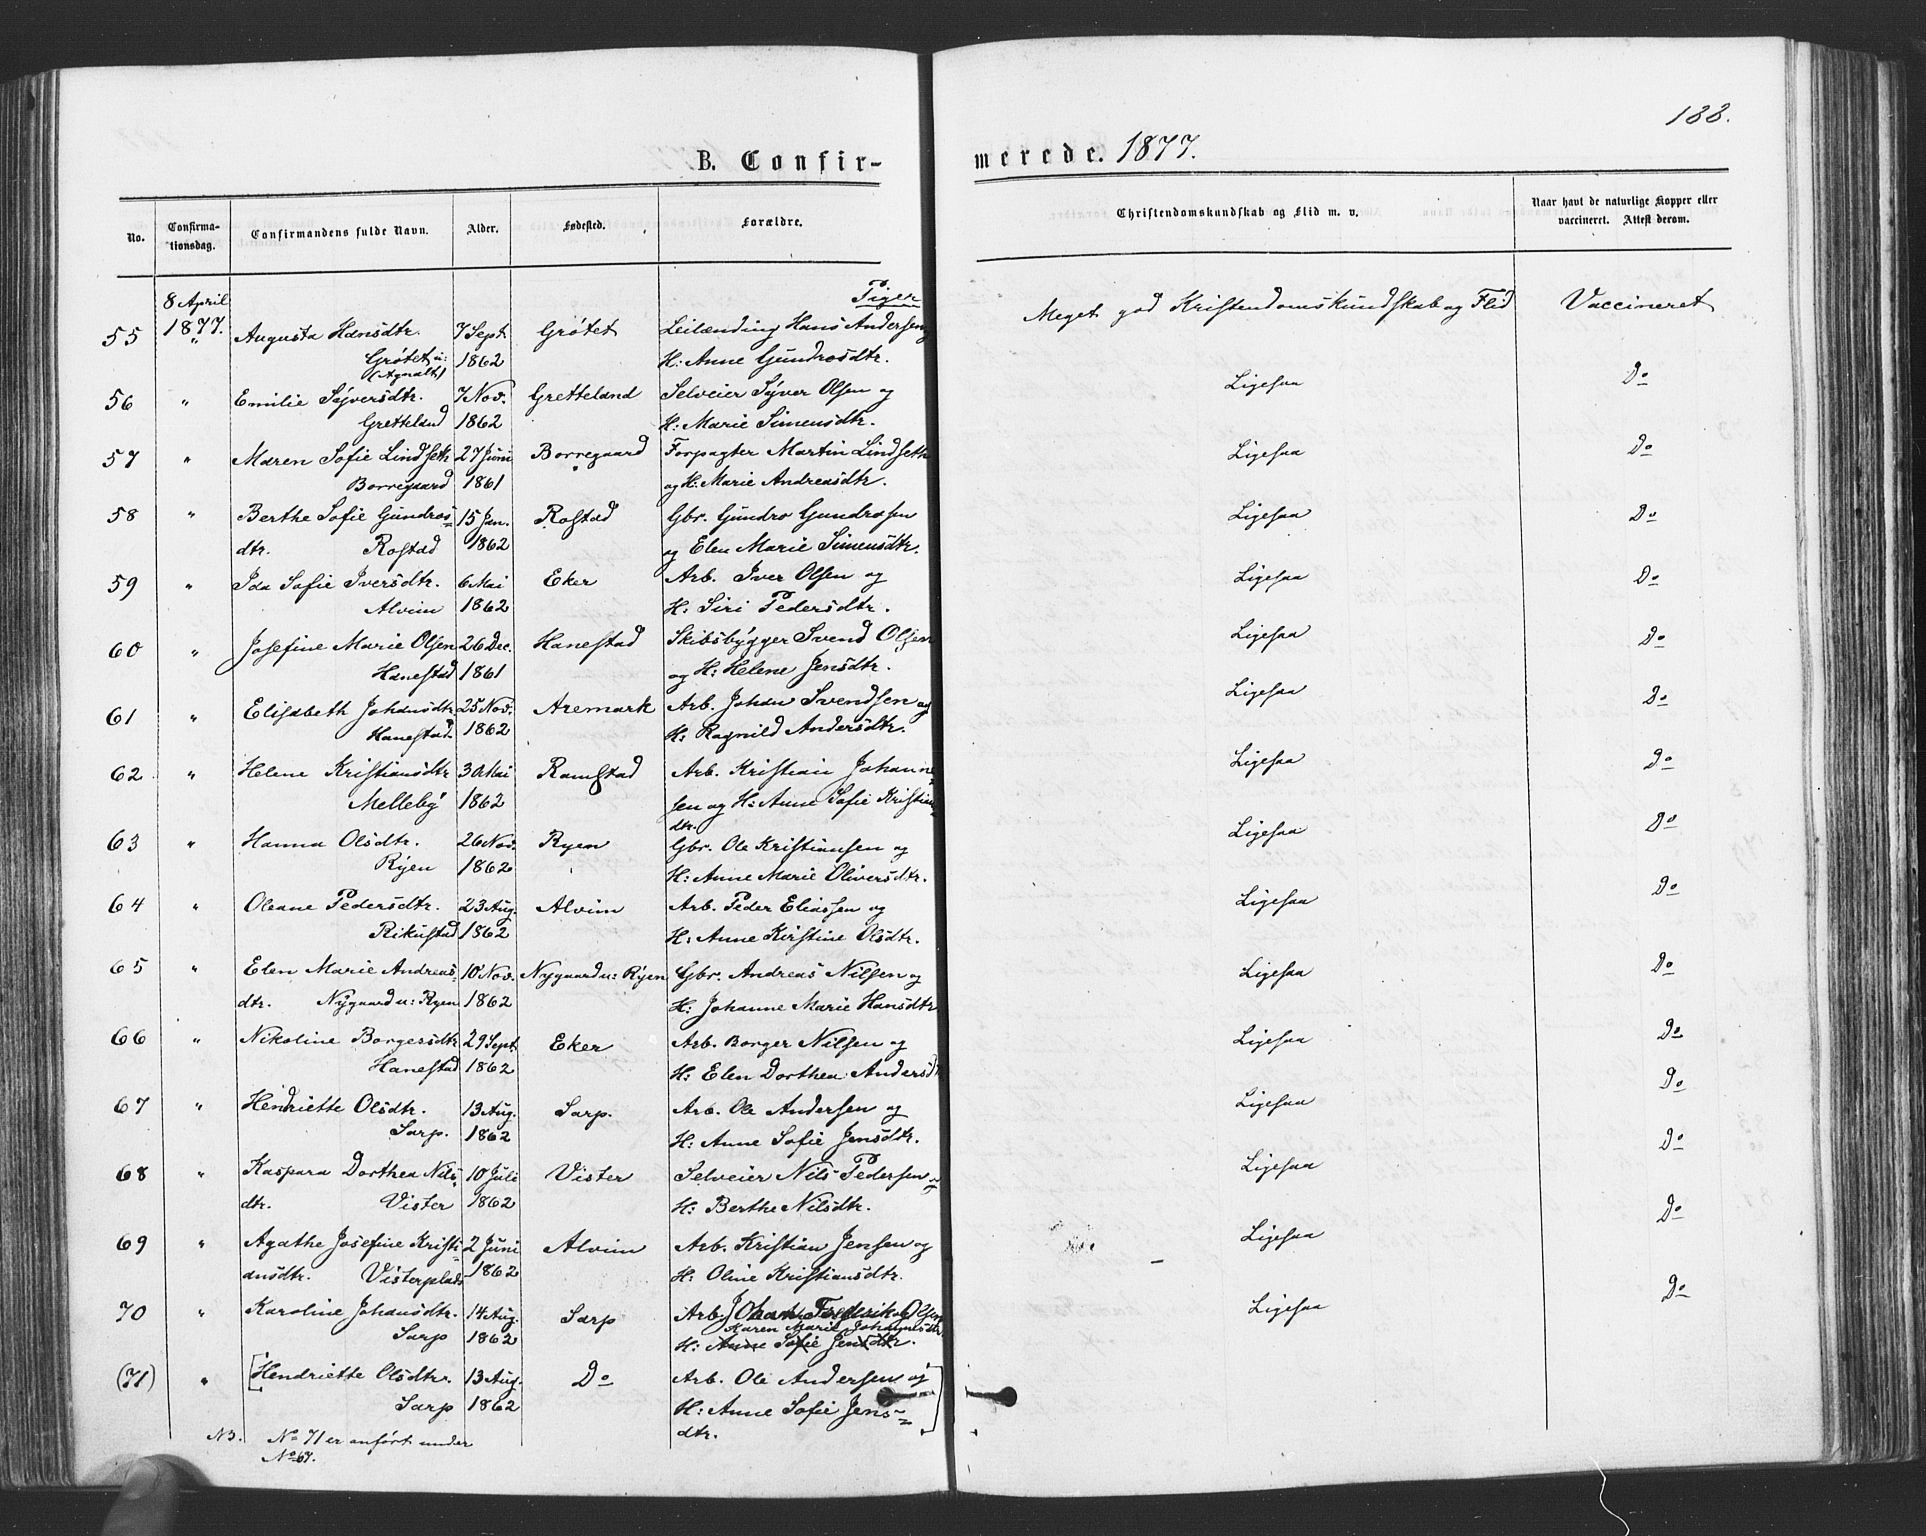 188.
B. Confir-
merede. 1877.
No.
Confirma-
tionsdag.
Confirmandens fulde Navn.
Alder.
Fødested.
Forældre.
Christendomskundskab og Flid m. v.
Naar havt de naturlige Kopper eller
vaccineret. Attest derom.
Piger
8 April
55 1877. Augusta Hansdtr. 7 Sept Grøtet Leilænding Hans Andersen og Meget god Kristendomskundskab og Flid Vaccineret
" Grøtet u: 1862 H: Anne Gundrosdtr.
(Agnalt)
56 " Emilie Syversdtr. 7 Nov. Gretteland Selveier Syver Olsen og Ligesaa Do
Gretteland 1862 H: Marie Simensdtr.
57 " Maren Sofie Lindseth 27 Juni Borregaard Forpagter Martin Lindseth Ligesaa Do
Borregaard 1861 og H: Marie Andreasdtr.
58 " Berthe Sofie Gundros- 15 Jan. Rostad Gbr. Gundro Gundrosen Ligesaa Do
dtr. Rostad 1862 og Elen Marie Simensdtr.
59 " Ida Sofie Iversdtr. 6 Mai Eker Arb. Iver Olsen og Ligesaa Do
Alvim 1862 H: Siri Pedersdtr.
60 " Josefine Marie Olsen 26 Dec. Hanestad Skibsbygger Svend Olsen Ligesaa Do
Hanestad 1861 og H: Helene Jensdtr.
61 " Elisabeth Johansdtr 25 Nov. Aremark Arb. Johan Svendsen og Ligesaa Do
Hanestad. 1862 H: Ragnild Andersdtr.
62 " Helene Kristiansdtr 30 Mai Ramstad Arb. Kristian Johanne- Ligesaa Do
Melleby 1862 sen og H: Anne Sofie Kristian-
dtr.
63 " Hanna Olsdtr. 26 Nov. Ryen Gbr. Ole Kristiansen og Ligesaa Do
Ryen 1862 H: Anne Marie Oliversdtr.
64 " Oleane Pedersdtr. 23 Aug. Alvim Arb. Peder Eliassen og Ligesaa Do
Rikustad 1862 H: Anne Kirstine Olsdtr.
65 " Elen Marie Andreas- 10 Nov. Nygaard u: Ryen Gbr. Andreas Nilsen og Ligesaa Do
dtr. Nygaard u: Ryen 1862 H: Johanne Marie Hansdtr
66 " Nikoline Borgersdtr 29 Sept Eker Arb. Borger Nilsen og Ligesaa Do
Hanestad 1862 H: Elen Dorthea Andersdtr
67 " Henriette Olsdtr. 13 Aug. Sarp. Arb. Ole Andersen og Ligesaa Do
Sarp. 1862 H: Anne Sofie Jensdtr.
68 " Kaspara Dorthea Nils- 10 Juli Vister Selveier Nils Pedersen og Ligesaa Do
dtr. Vister 1862 H: Berthe Nilsdtr.
69 " Agathe Josefine Kristi- 2 Juni Alvim Arb. Kristian Jensen og Ligesaa Do
ansdtr. Visterplads 1862 H: Oline Kristiansdtr.
70 " Karoline Johansdtr. 14 Aug. Sarp Arb. Johan Frederik Olsen Ligesaa Do
Karen Marie Johannesdtr.
Sarp 1862 H: Anne Sofie Jensdtr.
(71) " [Henriette Olsdtr. 13 Aug. Do Arb. Ole Andersen og]
Sarp 1862 H: Anne Sofie Jens-
dtr.
NB. No 71 er anført under
No 67.